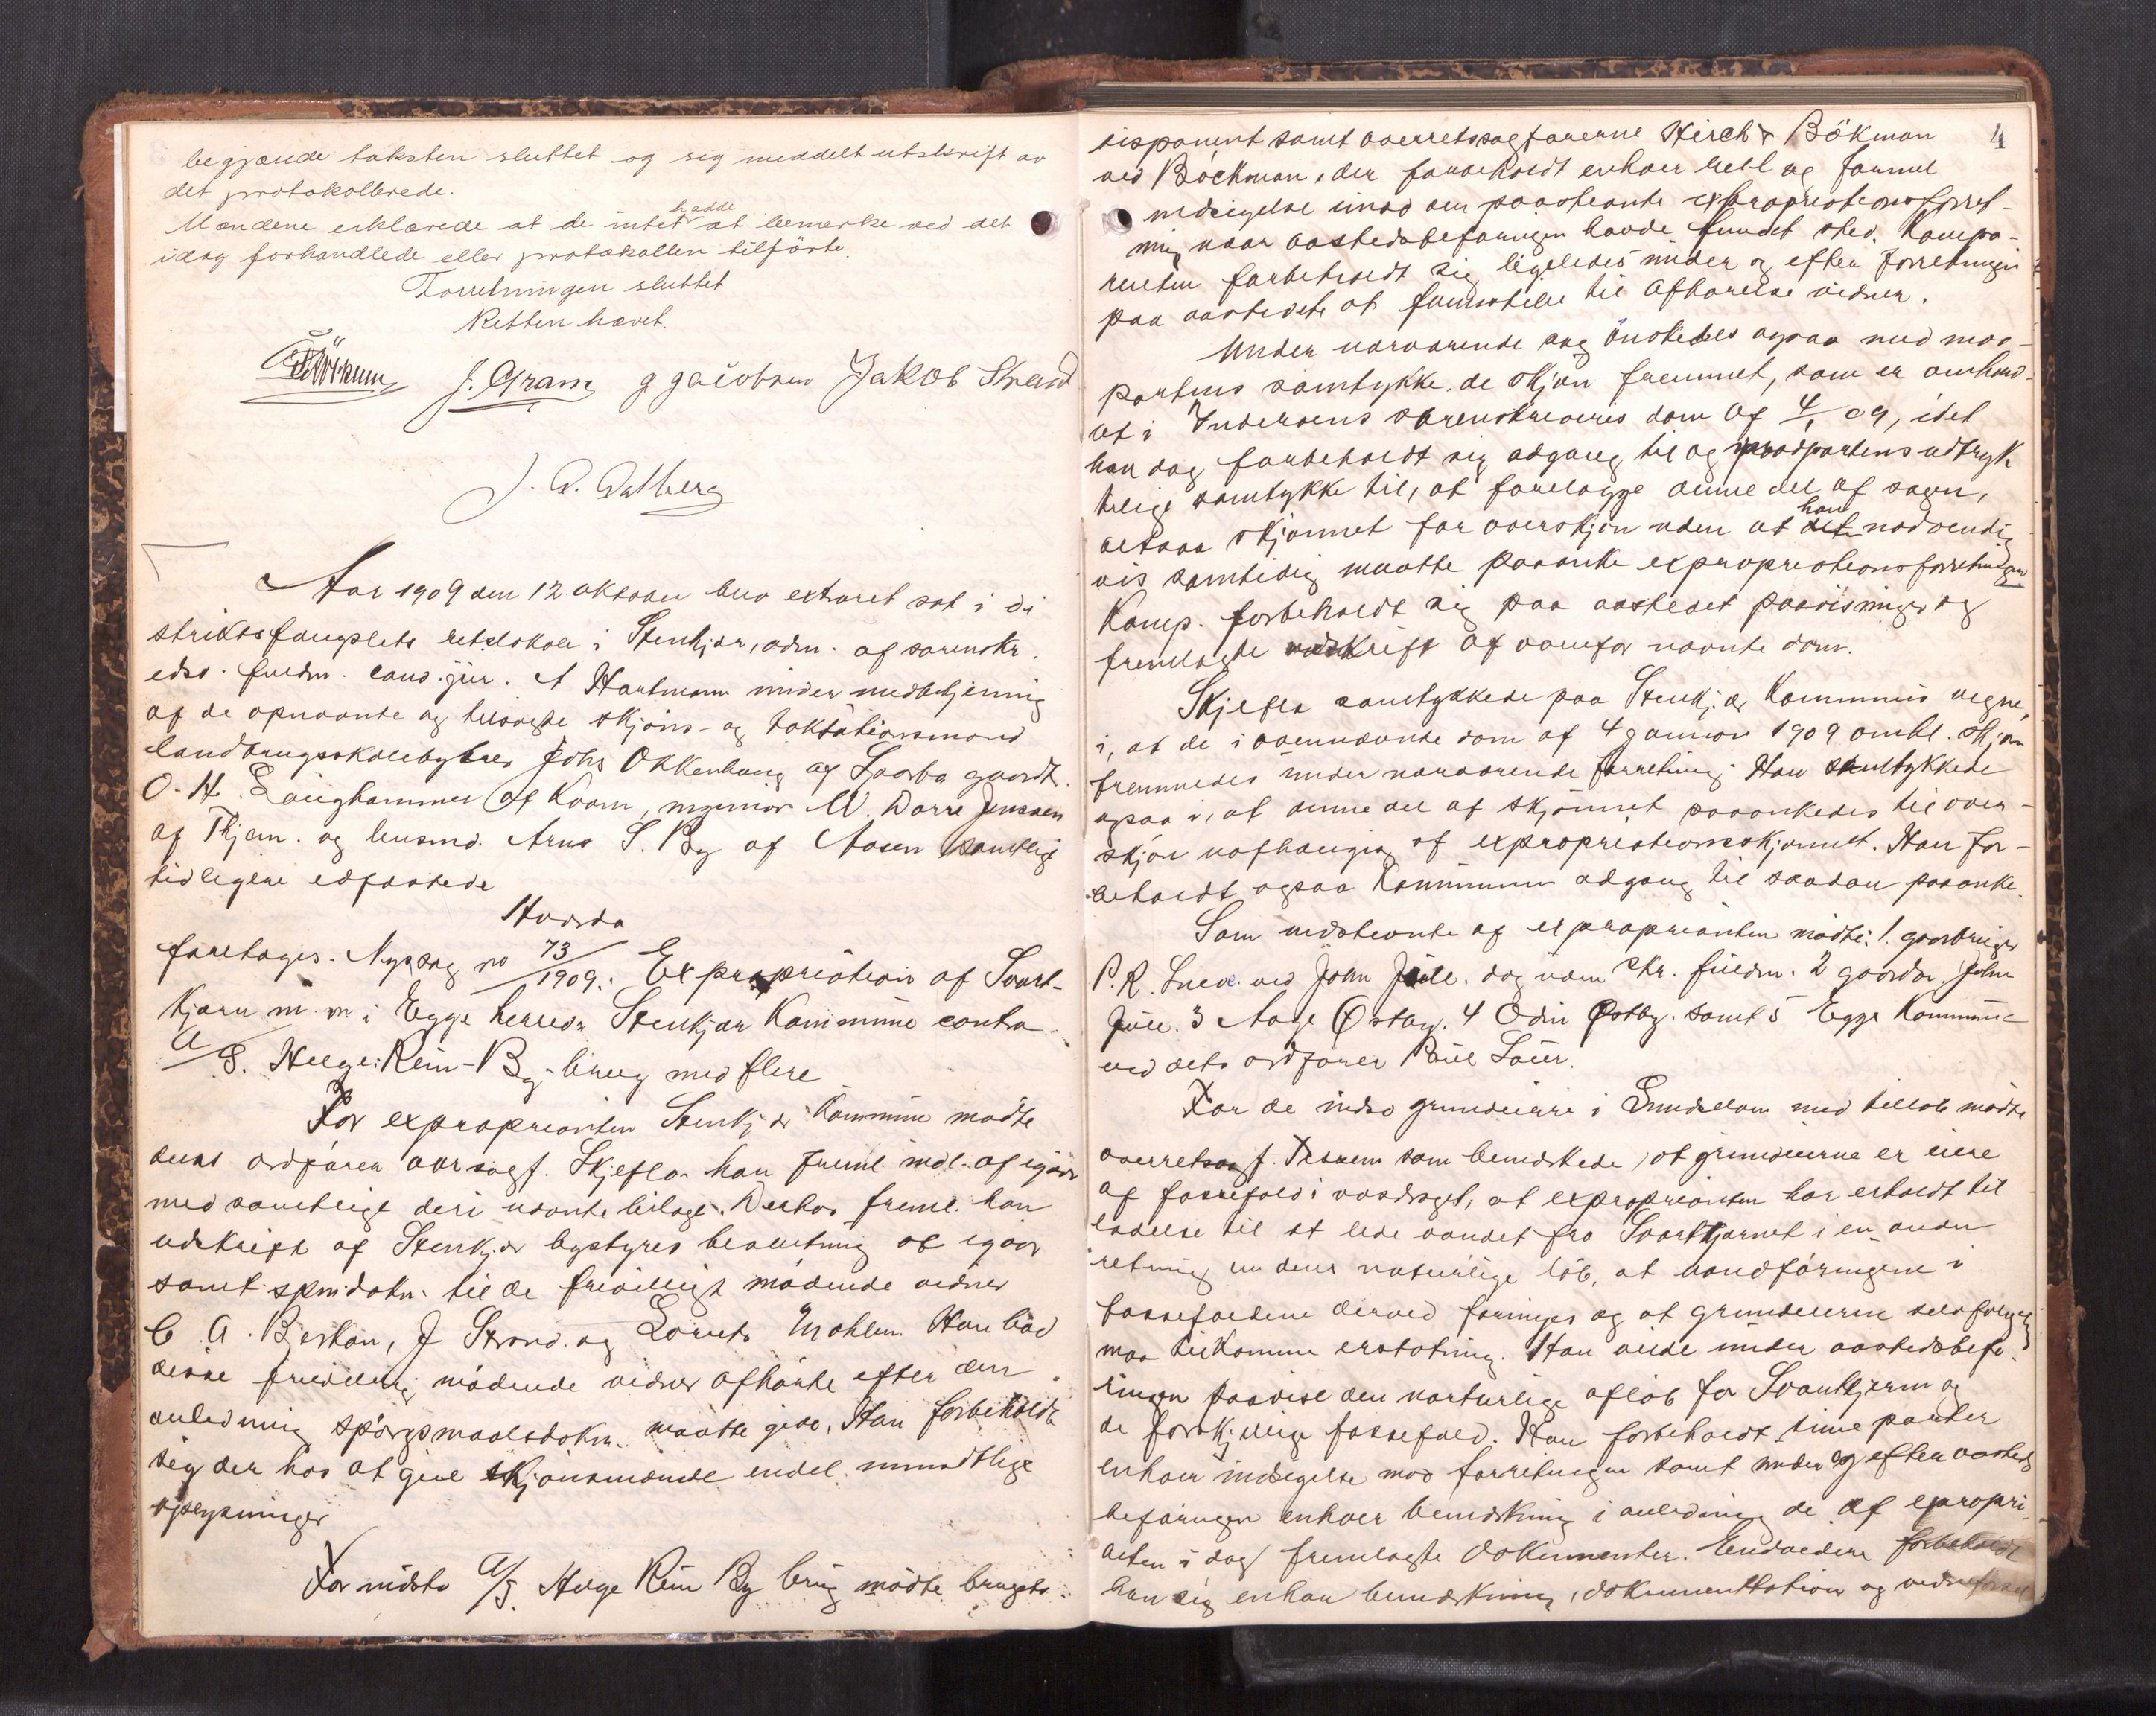 begjærede taksten sluttet og sig meddelt utskrift av
det protokollerede.
Mændene erklærede at de intet hadde at bemerke ved det
idag forhandlede eller protokollen tilførte.
Forretningen sluttet
Retten hævet.
J. Gram g jacobsen Jakob Strand
Aar 1909 den 12 oktober blev extraret sat i di
striktsfængslets retslokale i Stenkjær, adm. af sorenskr.
edsv. fuldm. cand. jur. A Hartmann under medbetjening
af de opnævnte og tilsagte skjøns- og taksationsmænd
landbrugsskolebestyrer Johs Okkenhaug af
O. H. Langhammer af Kvam, ingeniør W. Dorre Jenssen
af Thjem. og lensmd. Arne S. By af Aasen samtlige
tidligere edfæstede
Hvorda
foretages. Ny sag no 73/1909: Expropriation af Svart-
kjærn m. m i Egge herred: Stenkjær Kommune contra
A/S. Helge-Rein-By-brug med flere
For exproprianten Stenkjær Kommune mødte
dens ordfører oversagf. Skjefla. han freml. indl. af igaar
med samtlige deri nævnte bilage. Derhos freml. han
udskrift af Stenkjær bystyres beslutning af igaar
samt spmdokm. til de frivilligt mødende vidner
C. A. Bjerkan, J Strand. og Lorents Mohlen. Han bad
disse frivillig mødende vidner afhørte efter den
anledning spørgsmaalsdokm. maatte give. Han forbeholdt
sig der hos at give skjønsmændene endel mundtlige
oplysninger
For indstv A/S. Helge Rein By brug mødte brugets
4
disponent samt overretssagførerne Hirch & Bökman
ved Böckman, der forbeholdt enhver reel og formel
indsigelse imod den paastevnte expropriationsforret-
ning naar aastedsbefaringen havde fundet sted. Kompa-
renten forbeholdt sig ligeledes under og efter forretningen
paa aastedet at fremstille til afhørelse vidner.
Under nærværende sag ønskedes ogsaa med mod-
partens samtykke de skjøn fremmet, som er omhand-
let i Inderøens sorenskriveris dom af 4/1 09, idet
han dog forbeholdt sig adgang til og modpartens udtryk
kelige samtykke til, at forelægge denne del af sagen,
altsaa skjønnet for overskjøn uden at han nødvendig
vis samtidig maatte paaanke expropriationsforretningen
Komp. forbeholdt sig paa aastedet paavisninger og
fremlagte udskrift af ovenfor nævnte dom.
Skjefla samtykkede paa Stenkjær Kommunes vegne,
i, at de i ovennævnte dom af 4 januar 1909 omhl. skjøn
fremmedes under nærværende forretning Han samtykkede
ogsaa i, at denne del af skjønnet paaankedes til over-
skjøn uafhængig af expropriationsskjønnet. Han for-
beholdt ogsaa Kommunen adgang til saadan paaanke.
Som indstevnte af exproprianten mødte: 1. gaardbruger
P. R. Sneve ved John Juul. dog uden skr. fuldm. 2 gaardbr. John
Juul. 3 Aage Østby. 4 Odin Østby. samt 5 Egge Kommune
ved dets ordfører Paul Saur.
For de indst grundeiere i med tilløb mødte
overretssagf. Tessem som bemærkede, at grundeierne er eiere
af fossefald i vasdraget, at exproprianten har erholdt til
ladelse til at lede vandet fra Svarttjernet i en anden
retning en dens naturlige løb, at vandføringen i
fossefaldene derved forringes og at grundeierne selvfølgelig
maa tilkomme erstatning. Han vilde under aastedsbefa-
ringen paavise den naturlige afløb for Svarttjern og
de forskjellige fossefald. Han forbeholdt sine parter
enhver indsigelse mod forretningen samt under og efter aasteds
befaringen enhver bemærkning i anledning de af expropri
anten i dag fremlagte dokumenter. Endvidere forbeholdt
han sig enhver bemærkning, dokumentation og vidneførsel